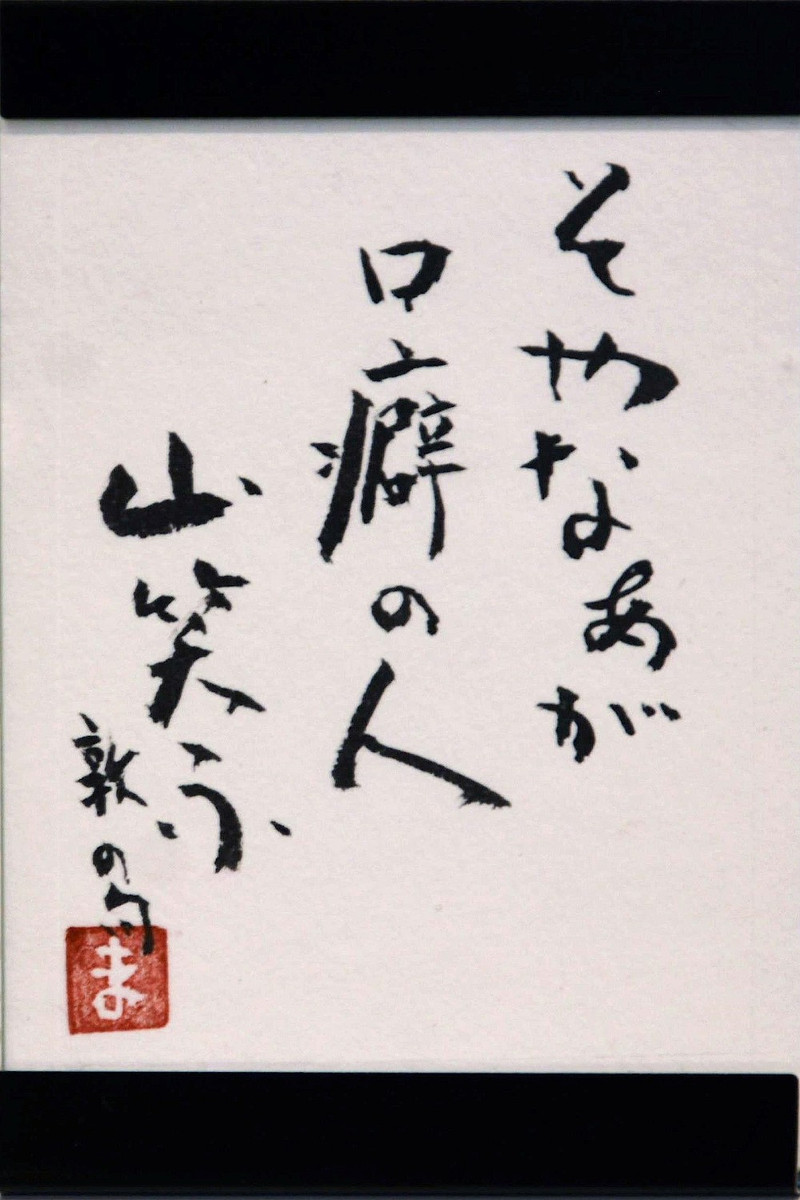 そやなあが
口癖の人
山笑ふ
敦の句
ま